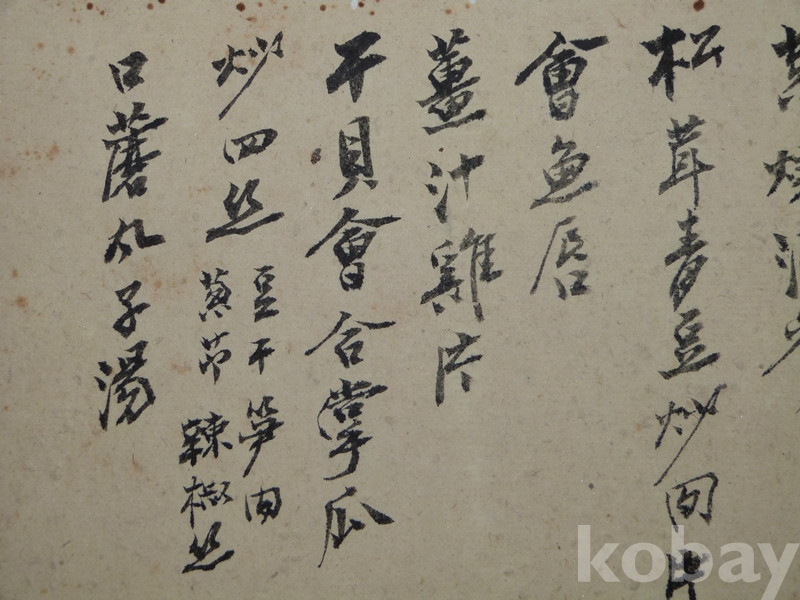 松茸青豆炒肉片
會魚唇
薑汁雞片
干貝會合掌瓜
炒四丝
豆干笋肉
蔥 辣椒丝
口蘑丸子湯
kobay